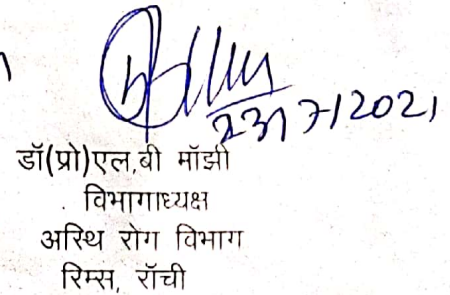 23/7/2021
डॉ(प्रो)एल,बी मॉझी
विभागाध्यक्ष
अस्थि रोग विभाग
रिम्स, रॉची